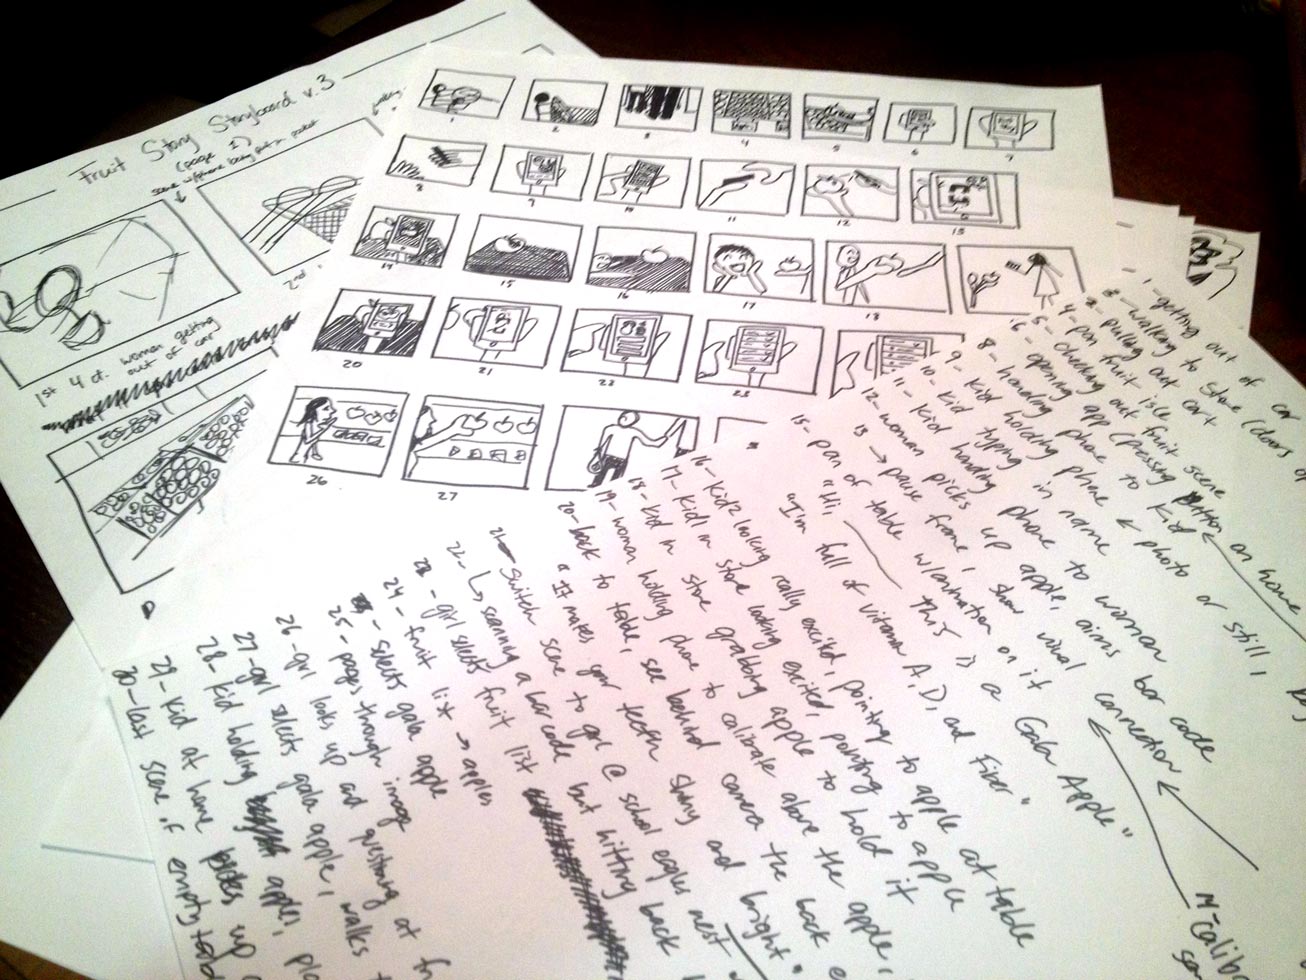 Fruit Story Storyboard v.3
(page 1)
scene w/phone being put in pocket
1st 4 ct. woman getting
out of car
2nd
1
2
3
4
5
6
7
8
9
10
11
12
13
14
15
16
17
18
20
21
22
23
26
27
1 - getting out of car
2 - walking to store (doors
3 - pulling out cart
4 - pan fruit isle
5 - checking out fruit scene
6 - opening app (pressing button on home
8 - handing phone to kid
9 - kid holding phone ← photo or still,
10 - kid typing in name
11 - kid handing phone to woman
12 - woman picks up apple, aims bar code
13 → pause frame, show visual connection
15 - pan of table w/animation on it
"Hi, This is a Gala Apple"
"I'm full of vitamin A, D, and Fiber"
16 - kid2 looking really excited, pointing to apple at table
17 - kid1 in store looking excited, pointing to apple
18 - kid in store grabbing apple to hold it
19 - woman holding phone to calibrate above the apple,
20 - back to table, see behind camera the back
"It makes your teeth shiny and bright"
21 - switch scene to girl @ school eagles nest
22 - ↳ scanning a barcode but hitting back
- girl selects fruit list
24 - fruit list → apples
- selects gala apple
25 - pages through image
26 - girl looks up and questioning at
27 - girl selects gala apple, walks
28 - kid holding apple,
29 - kid at home bites
30 - last scene of empty